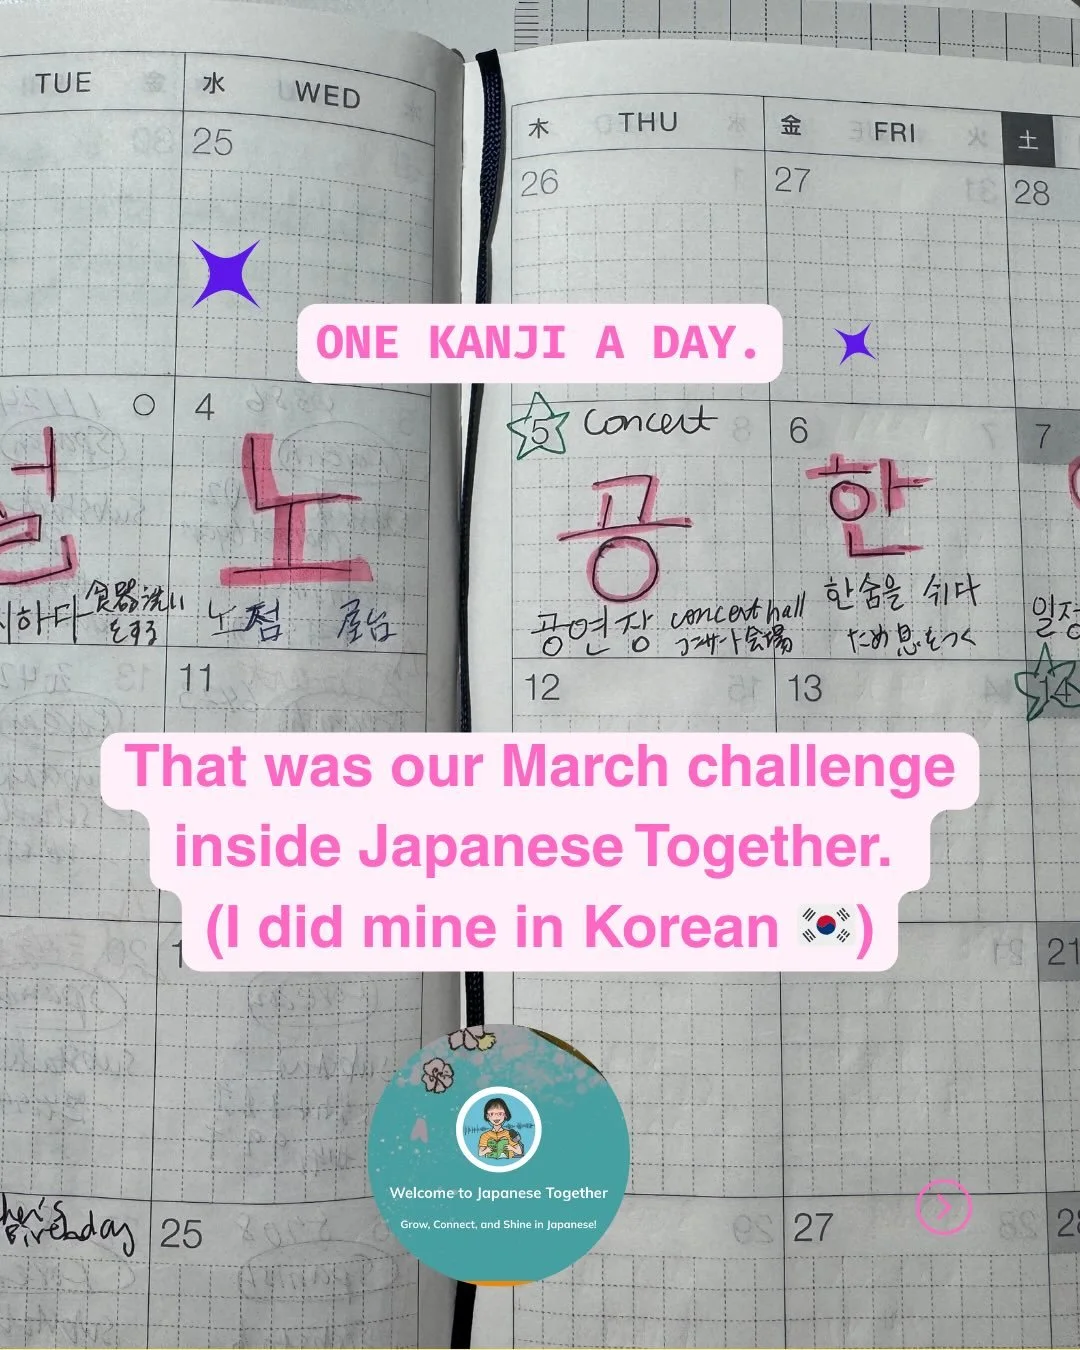 TUE
水 WED
木 THU
金 FRI
土
25
26
27
28
ONE KANJI A DAY.
4
5 Concert
6
7
노
공
한
食器洗い
をする
하다
노점 屋台
공연장 concert hall
コンサート会場
한숨을 쉬다
ため息をつく
일정
11
12
13
14
That was our March challenge
inside Japanese Together.
(I did mine in Korean 🇰🇷)
21
Welcome to Japanese Together
Grow, Connect, and Shine in Japanese!
Birthday
25
27